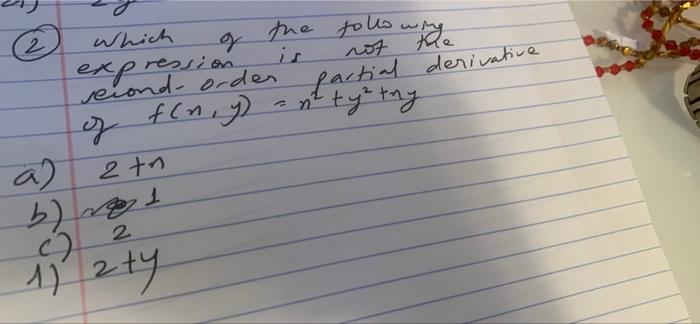 ② which of the following
expression is not the
second-order partial derivative
of f(n, y) = n² + y² + ny
a) 2+n
b) 1
c) 2
1) 2+y